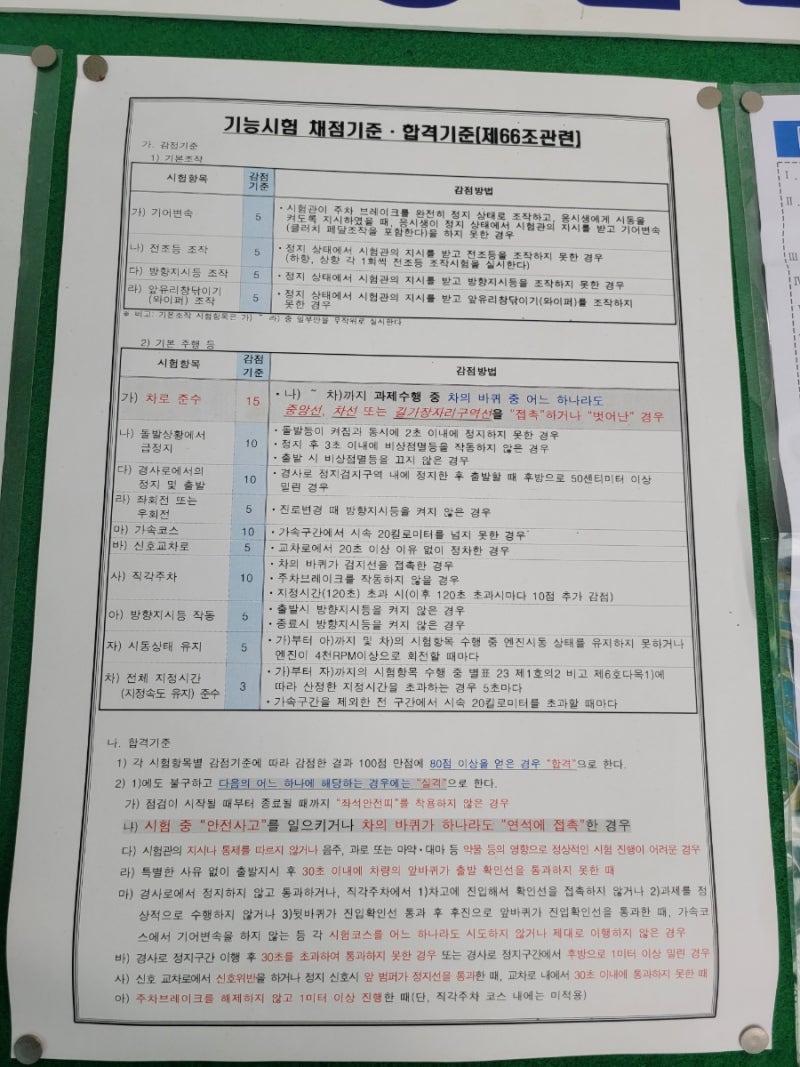 기능시험 채점기준 · 합격기준(제66조관련)
가. 감점기준
1) 기본조작
시험항목 감점기준 감점방법
가) 기어변속 5 · 시험관이 주차 브레이크를 완전히 정지 상태로 조작하고, 응시생에게 시동을
켜도록 지시하였을 때, 응시생이 정지 상태에서 시험관의 지시를 받고 기어변속
(클러치 페달조작을 포함한다)을 하지 못한 경우
나) 전조등 조작 5 · 정지 상태에서 시험관의 지시를 받고 전조등을 조작하지 못한 경우
(하향, 상향 각 1회씩 전조등 조작시험을 실시한다)
다) 방향지시등 조작 5 · 정지 상태에서 시험관의 지시를 받고 방향지시등을 조작하지 못한 경우
라) 앞유리창닦이기
(와이퍼) 조작 5 · 정지 상태에서 시험관의 지시를 받고 앞유리창닦이기(와이퍼)를 조작하지
못한 경우
※ 비고: 기본조작 시험항목은 가) ~ 라) 중 일부만을 무작위로 실시한다
2) 기본 주행 등
시험항목 감점기준 감점방법
가) 차로 준수 15 · 나) ~ 차)까지 과제수행 중 차의 바퀴 중 어느 하나라도
중앙선, 차선 또는 길가장자리구역선을 "접촉"하거나 "벗어난" 경우
나) 돌발상황에서
급정지 10 · 돌발등이 켜짐과 동시에 2초 이내에 정지하지 못한 경우
· 정지 후 3초 이내에 비상점멸등을 작동하지 않은 경우
· 출발 시 비상점멸등을 끄지 않은 경우
다) 경사로에서의
정지 및 출발 10 · 경사로 정지검지구역 내에 정지한 후 출발할 때 후방으로 50센티미터 이상
밀린 경우
라) 좌회전 또는
우회전 5 · 진로변경 때 방향지시등을 켜지 않은 경우
마) 가속코스 10 · 가속구간에서 시속 20킬로미터를 넘지 못한 경우
바) 신호교차로 5 · 교차로에서 20초 이상 이유 없이 정차한 경우
사) 직각주차 10 · 차의 바퀴가 검지선을 접촉한 경우
· 주차브레이크를 작동하지 않을 경우
· 지정시간(120초) 초과 시(이후 120초 초과시마다 10점 추가 감점)
아) 방향지시등 작동 5 · 출발시 방향지시등을 켜지 않은 경우
· 종료시 방향지시등을 켜지 않은 경우
자) 시동상태 유지 5 · 가)부터 아)까지 및 차)의 시험항목 수행 중 엔진시동 상태를 유지하지 못하거나
엔진이 4천RPM이상으로 회전할 때마다
차) 전체 지정시간
(지정속도 유지) 준수 3 · 가)부터 자)까지의 시험항목 수행 중 별표 23 제1호의2 비고 제6호다목1)에
따라 산정한 지정시간을 초과하는 경우 5초마다
· 가속구간을 제외한 전 구간에서 시속 20킬로미터를 초과할 때마다
나. 합격기준
1) 각 시험항목별 감점기준에 따라 감점한 결과 100점 만점에 80점 이상을 얻은 경우 "합격"으로 한다.
2) 1)에도 불구하고 다음의 어느 하나에 해당하는 경우에는 "실격"으로 한다.
가) 점검이 시작될 때부터 종료될 때까지 "좌석안전띠"를 착용하지 않은 경우
나) 시험 중 "안전사고"를 일으키거나 차의 바퀴가 하나라도 "연석에 접촉"한 경우
다) 시험관의 지시나 통제를 따르지 않거나 음주, 과로 또는 마약·대마 등 약물 등의 영향으로 정상적인 시험 진행이 어려운 경우
라) 특별한 사유 없이 출발지시 후 30초 이내에 차량의 앞바퀴가 출발 확인선을 통과하지 못한 때
마) 경사로에서 정지하지 않고 통과하거나, 직각주차에서 1)차고에 진입해서 확인선을 접촉하지 않거나 2)과제를 정
상적으로 수행하지 않거나 3)뒷바퀴가 진입확인선 통과 후 후진으로 앞바퀴가 진입확인선을 통과한 때, 가속코
스에서 기어변속을 하지 않는 등 각 시험코스를 어느 하나라도 시도하지 않거나 제대로 이행하지 않은 경우
바) 경사로 정지구간 이행 후 30초를 초과하여 통과하지 못한 경우 또는 경사로 정지구간에서 후방으로 1미터 이상 밀린 경우
사) 신호 교차로에서 신호위반을 하거나 정지 신호시 앞 범퍼가 정지선을 통과한 때, 교차로 내에서 30초 이내에 통과하지 못한 때
아) 주차브레이크를 해제하지 않고 1미터 이상 진행한 때(단, 직각주차 코스 내에는 미적용)